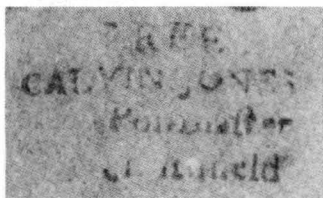 FREE
CALVIN JONES
Postmaster